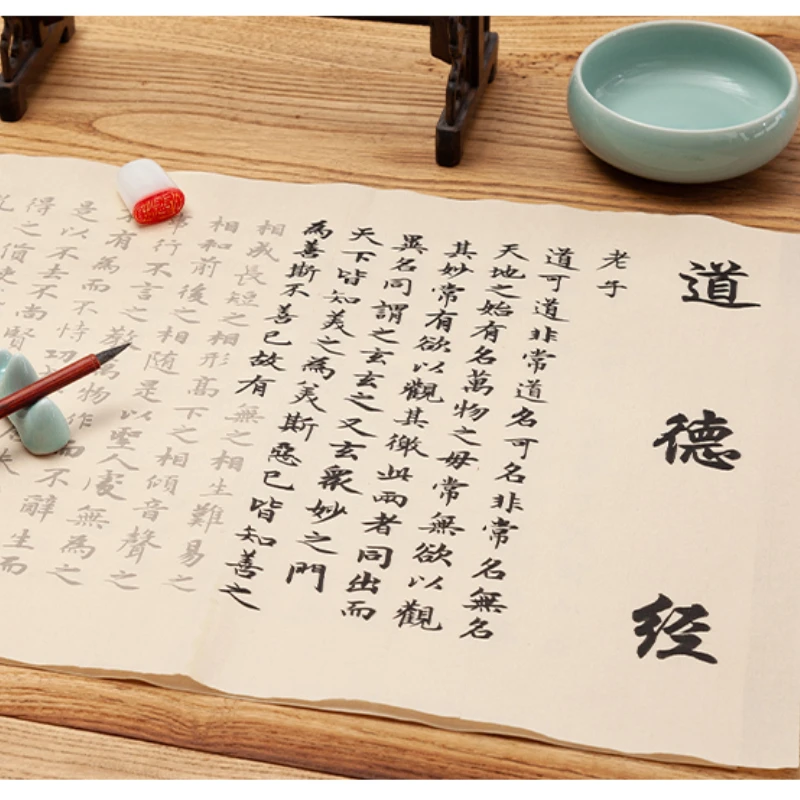 道德经
老子
道可道非常道名可名非常名無名
天地之始有名萬物之母常無欲以觀
其妙常有欲以觀其徼此兩者同出而
異名同謂之玄玄之又玄衆妙之門
天下皆知美之為美斯惡已皆知善之
為善斯不善已故有無之相生難易之
相成長短之相形高下之相傾音聲之
相和前後之相隨是以聖人處無為之
行不言之教萬物作而不辭生而
有為而不恃功
是以不去不尚賢
得之貨